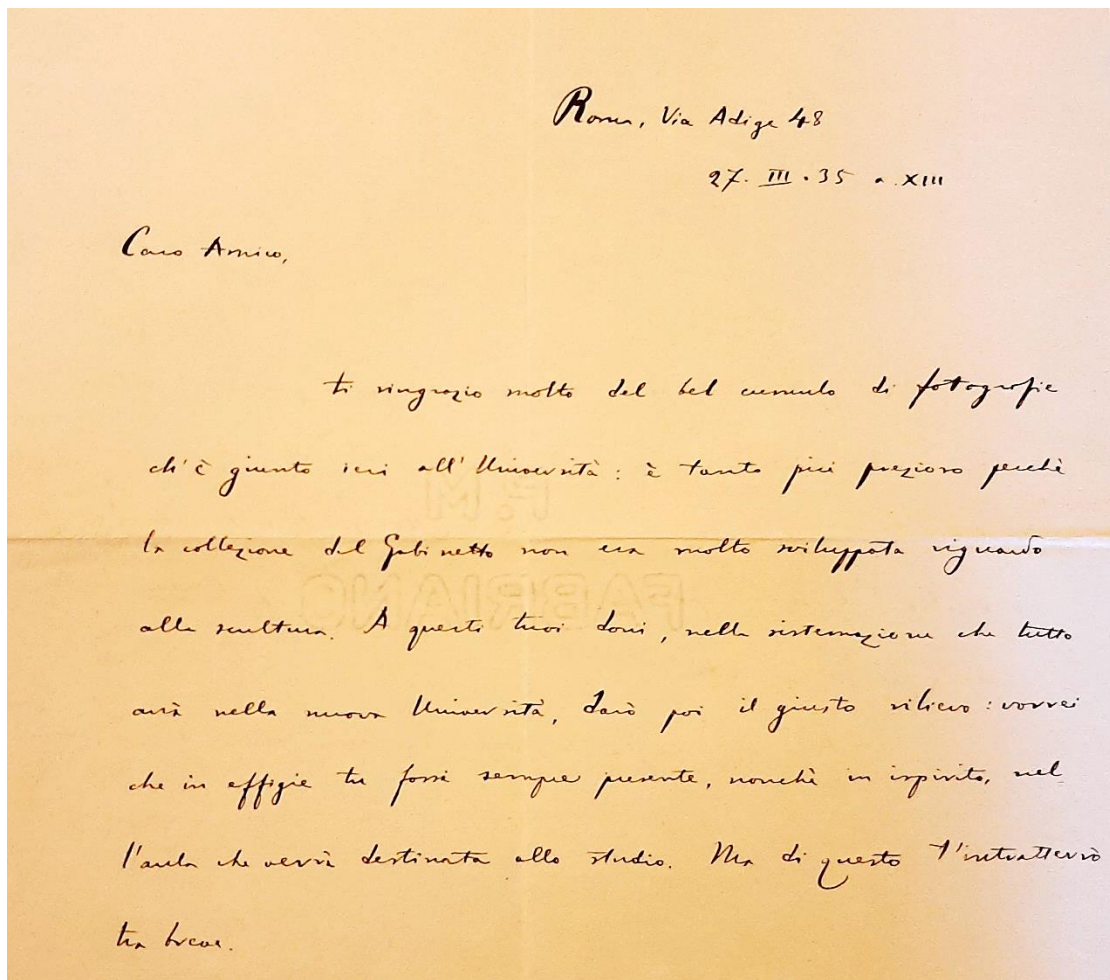 Roma, Via Adige 48
27. III. 35 a. XIII
Caro Amico,
ti ringrazio molto del bel cumulo di fotografie
ch'è giunto ieri all'Università: è tanto più prezioso perchè
la collezione del Gabinetto non era molto sviluppata riguardo
alla scultura. A questi tuoi doni, nella sistemazione che tutto
avrà nella nuova Università, darò poi il giusto rilievo: vorrei
che in effigie tu fossi sempre presente, nonchè in ispirito, nel-
l'aula che verrà destinata allo studio. Ma di questo t'intratterrò
tra breve.
F.M
FABRIANO